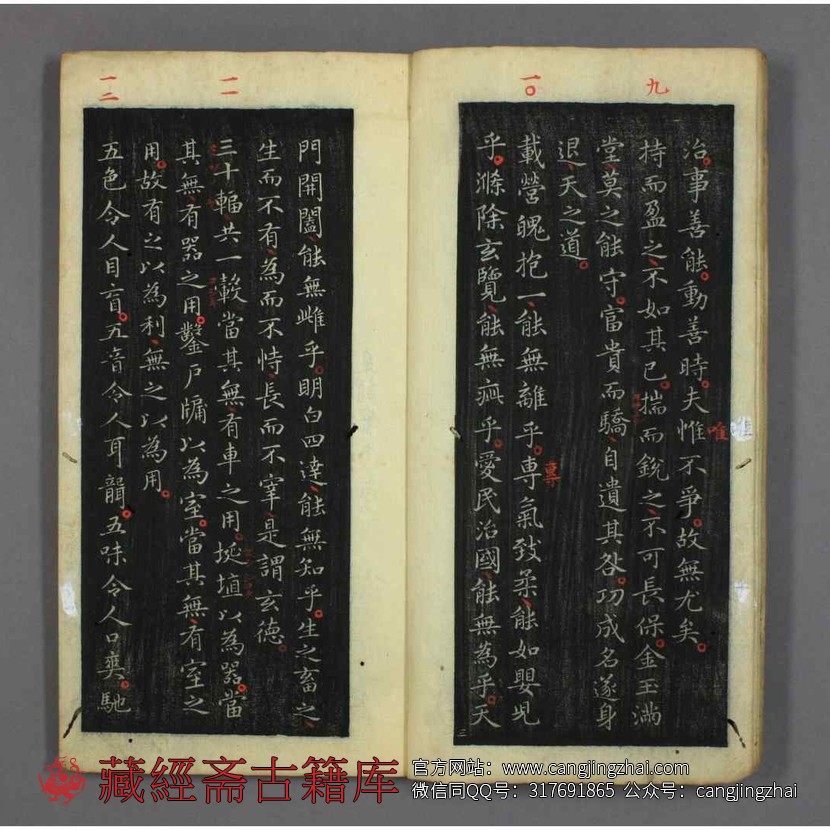 九
一〇
治事善能動善時夫惟不爭故無尤矣
唯
持而盈之不如其已揣而銳之不可長保金玉滿
堂莫之能守富貴而驕自遺其咎功成名遂身
退天之道
載營魄抱一能無離乎專氣致柔能如嬰兒
專
乎滌除玄覽能無疵乎愛民治國能無為乎天
一一
一二
門開闔能無雌乎明白四達能無知乎生之畜之
生而不有為而不恃長而不宰是謂玄德
三十輻共一轂當其無有車之用埏埴以為器當
其無有器之用鑿戶牖以為室當其無有室之
用故有之以為利無之以為用
五色令人目盲五音令人耳聾五味令人口爽馳
藏經斋古籍库
官方网站：www.cangjingzhai.com
微信同QQ号：317691865 公众号：cangjingzhai